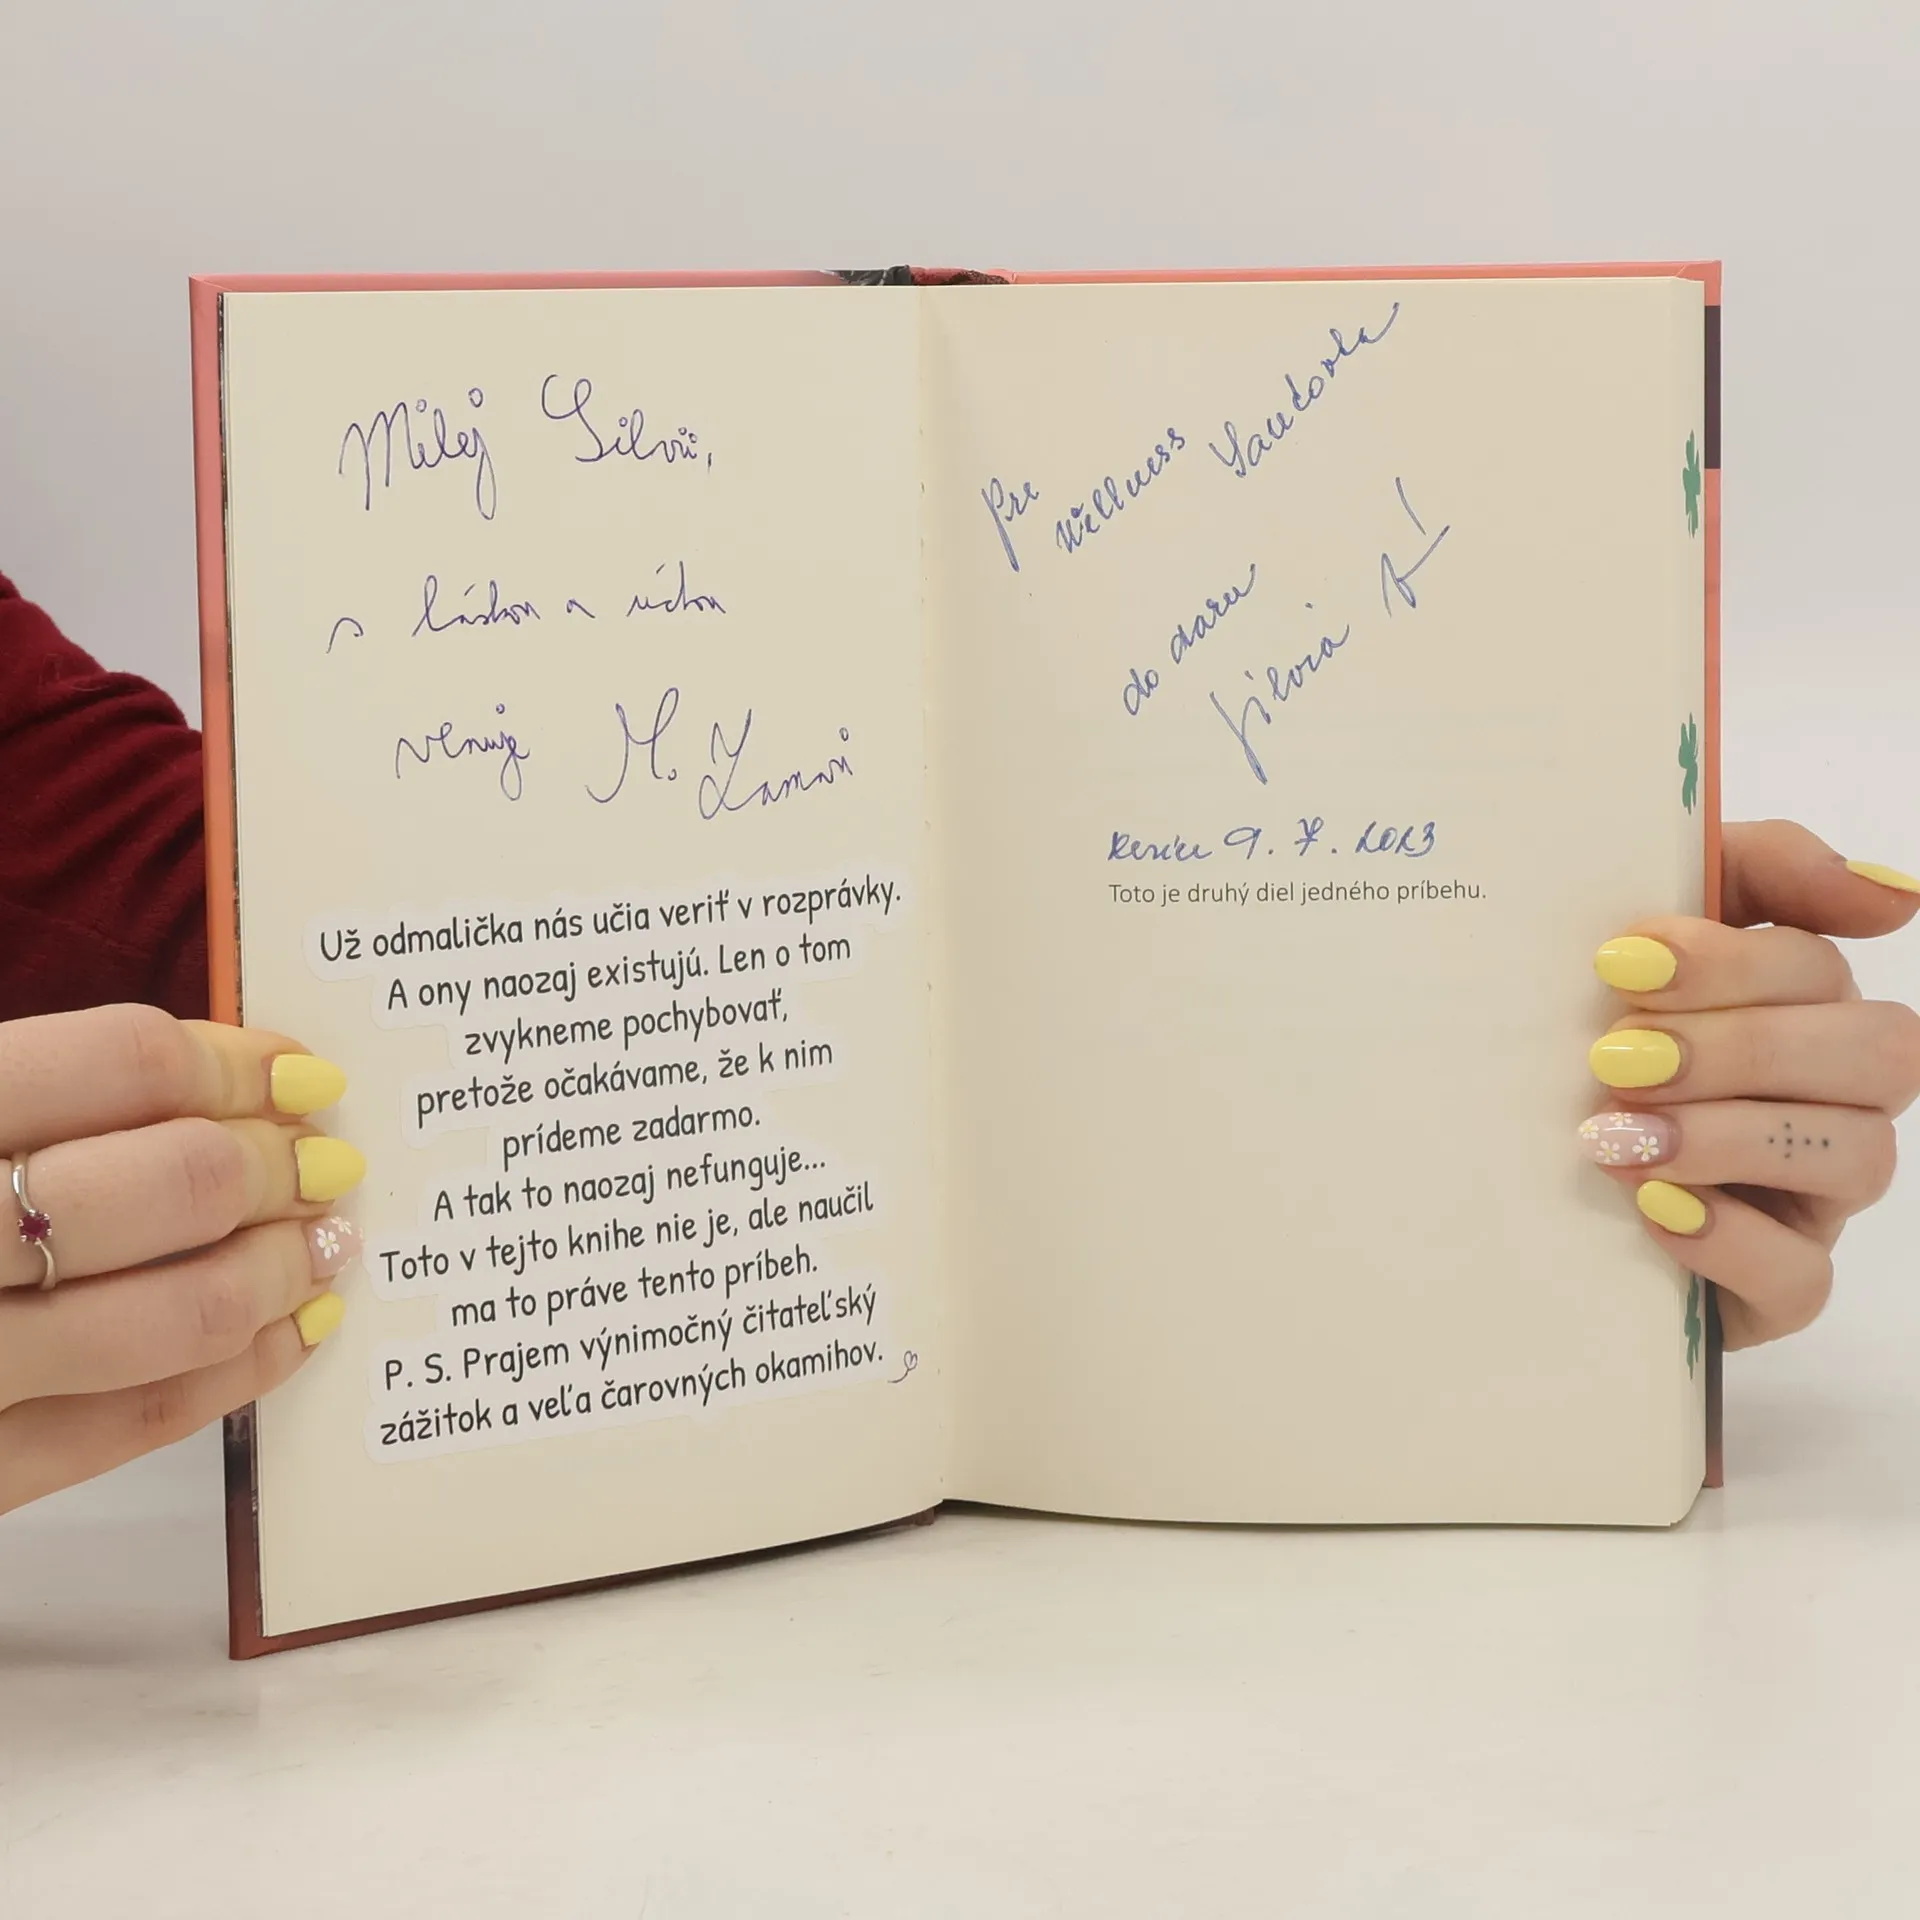 Milej Silvii,
s láskou a úctou
venuje M.
Už odmalička nás učia veriť v rozprávky.
A ony naozaj existujú. Len o tom
zvykneme pochybovať,
pretože očakávame, že k nim
prídeme zadarmo.
A tak to naozaj nefunguje...
Toto v tejto knihe nie je, ale naučil
ma to práve tento príbeh.
P. S. Prajem výnimočný čitateľský
zážitok a veľa čarovných okamihov.
Pre
Wellness
do daru
Silvia
9. 7. 2023
Toto je druhý diel jedného príbehu.